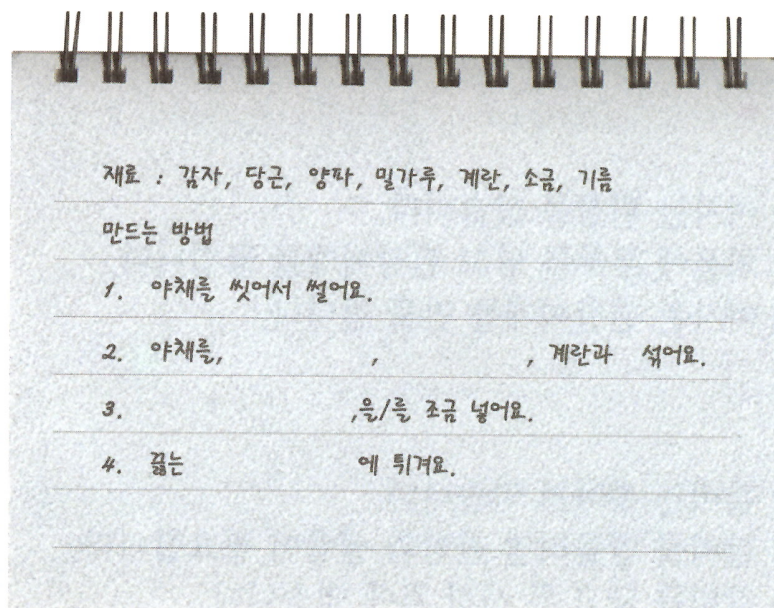 재료 : 감자, 당근, 양파, 밀가루, 계란, 소금, 기름
만드는 방법
1. 야채를 씻어서 썰어요.
2. 야채를, , , 계란과 섞어요.
3. ,을/를 조금 넣어요.
4. 끓는 에 튀겨요.